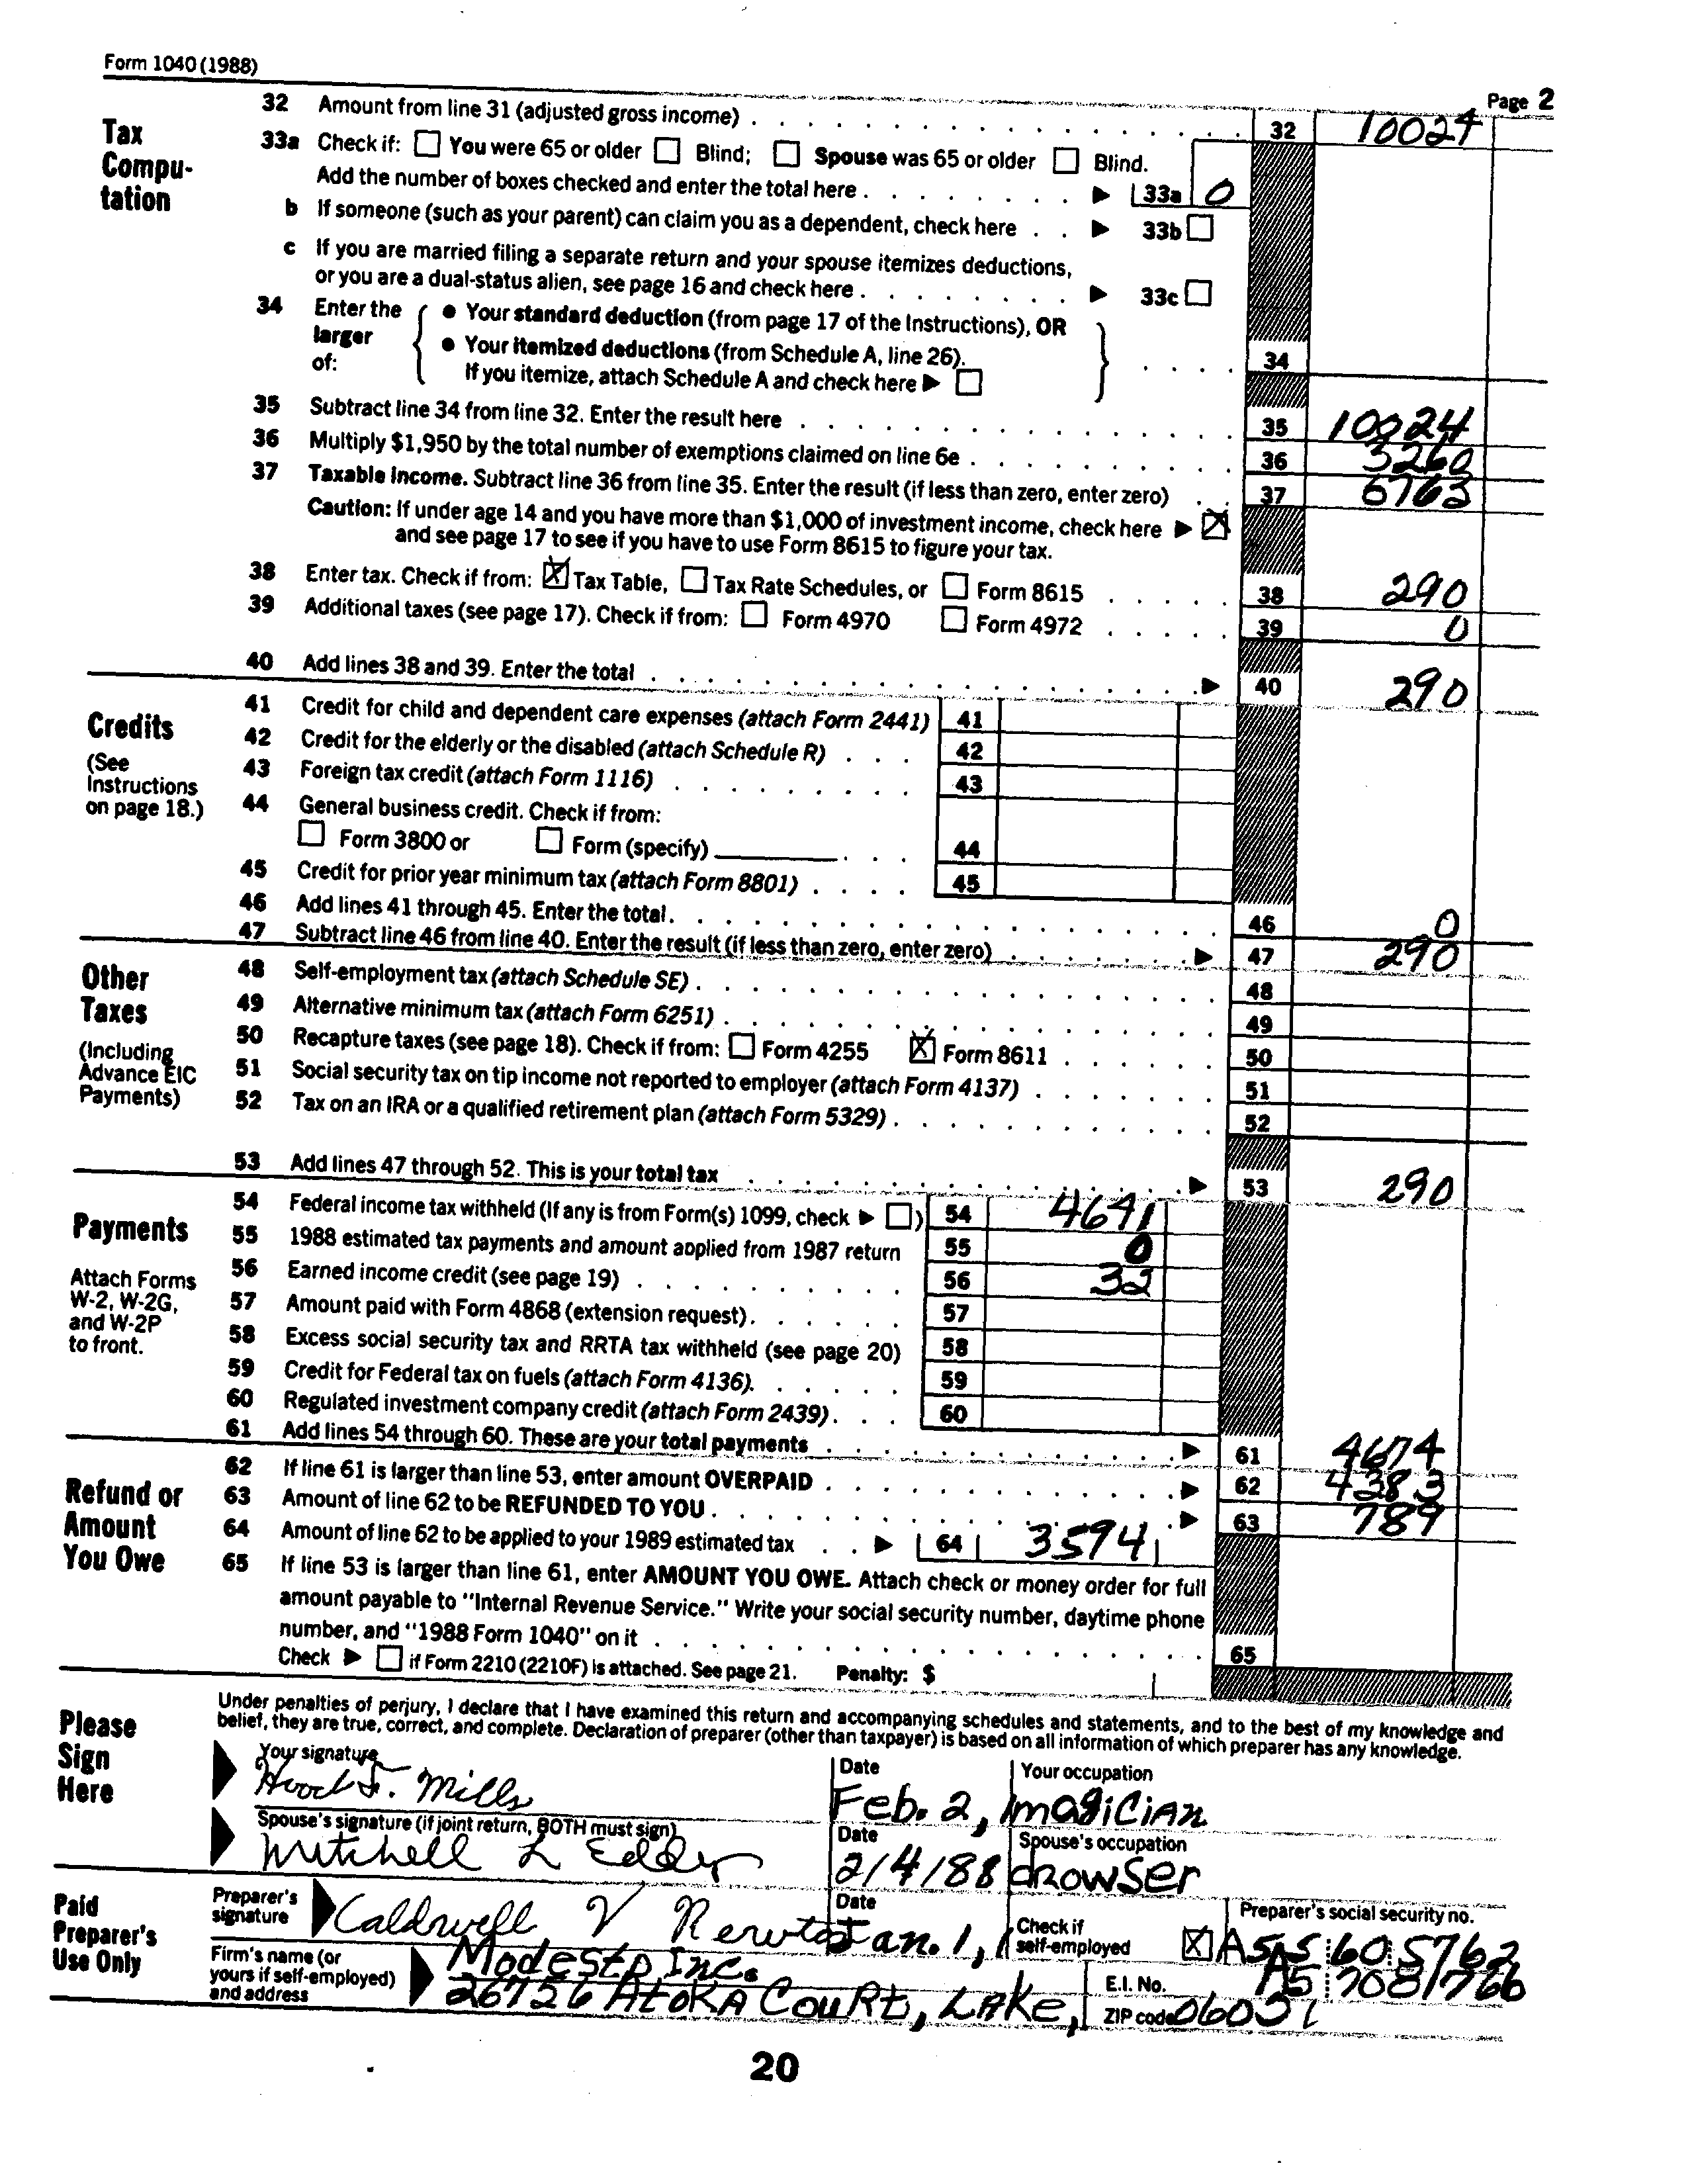 Form 1040 (1988)
Page 2
Tax Compu-tation
32 Amount from line 31 (adjusted gross income) . . . 32 10024
33a Check if: ☐ You were 65 or older ☐ Blind; ☐ Spouse was 65 or older ☐ Blind.
Add the number of boxes checked and enter the total here . . . ▶ 33a 0
b If someone (such as your parent) can claim you as a dependent, check here . . ▶ 33b ☐
c If you are married filing a separate return and your spouse itemizes deductions,
or you are a dual-status alien, see page 16 and check here . . . ▶ 33c ☐
34 Enter the larger of:
● Your standard deduction (from page 17 of the Instructions), OR
● Your itemized deductions (from Schedule A, line 26).
If you itemize, attach Schedule A and check here ▶ ☐ . . . . 34
35 Subtract line 34 from line 32. Enter the result here . . . 35 10024
36 Multiply $1,950 by the total number of exemptions claimed on line 6e . . . 36 3260
37 Taxable income. Subtract line 36 from line 35. Enter the result (if less than zero, enter zero) . . 37 6763
Caution: If under age 14 and you have more than $1,000 of investment income, check here ▶ ☒
and see page 17 to see if you have to use Form 8615 to figure your tax.
38 Enter tax. Check if from: ☒ Tax Table, ☐ Tax Rate Schedules, or ☐ Form 8615 . . . 38 290
39 Additional taxes (see page 17). Check if from: ☐ Form 4970 ☐ Form 4972 . . . 39 0
40 Add lines 38 and 39. Enter the total . . . ▶ 40 290
Credits
(See Instructions on page 18.)
41 Credit for child and dependent care expenses (attach Form 2441) 41
42 Credit for the elderly or the disabled (attach Schedule R) . . . 42
43 Foreign tax credit (attach Form 1116) . . . 43
44 General business credit. Check if from:
☐ Form 3800 or ☐ Form (specify) . . . 44
45 Credit for prior year minimum tax (attach Form 8801) . . . . 45
46 Add lines 41 through 45. Enter the total . . . 46 0
47 Subtract line 46 from line 40. Enter the result (if less than zero, enter zero) . . . ▶ 47 290
Other Taxes
(Including Advance EIC Payments)
48 Self-employment tax (attach Schedule SE) . . . 48
49 Alternative minimum tax (attach Form 6251) . . . 49
50 Recapture taxes (see page 18). Check if from: ☐ Form 4255 ☒ Form 8611 . . . 50
51 Social security tax on tip income not reported to employer (attach Form 4137) . . . 51
52 Tax on an IRA or a qualified retirement plan (attach Form 5329) . . . 52
53 Add lines 47 through 52. This is your total tax . . . ▶ 53 290
Payments
Attach Forms W-2, W-2G, and W-2P to front.
54 Federal income tax withheld (If any is from Form(s) 1099, check ▶ ☐) 54 4641
55 1988 estimated tax payments and amount applied from 1987 return 55 0
56 Earned income credit (see page 19) . . . 56 32
57 Amount paid with Form 4868 (extension request) . . . 57
58 Excess social security tax and RRTA tax withheld (see page 20) 58
59 Credit for Federal tax on fuels (attach Form 4136). . . . 59
60 Regulated investment company credit (attach Form 2439) . . . 60
61 Add lines 54 through 60. These are your total payments . . . ▶ 61 4674
Refund or Amount You Owe
62 If line 61 is larger than line 53, enter amount OVERPAID . . . ▶ 62 4383
63 Amount of line 62 to be REFUNDED TO YOU . . . ▶ 63 789
64 Amount of line 62 to be applied to your 1989 estimated tax . . ▶ 64 3594
65 If line 53 is larger than line 61, enter AMOUNT YOU OWE. Attach check or money order for full
amount payable to "Internal Revenue Service." Write your social security number, daytime phone
number, and "1988 Form 1040" on it . . . 65
Check ▶ ☐ if Form 2210 (2210F) is attached. See page 21. Penalty: $
Please Sign Here
Under penalties of perjury, I declare that I have examined this return and accompanying schedules and statements, and to the best of my knowledge and
belief, they are true, correct, and complete. Declaration of preparer (other than taxpayer) is based on all information of which preparer has any knowledge.
Your signature Date Your occupation
F. Mills Feb. 2, magician
Spouse's signature (if joint return, BOTH must sign) Date Spouse's occupation
Mitchell L Eddy 2/4/88 drowser
Paid Preparer's Use Only
Preparer's signature Caldwell V Date Jan. 1, Check if self-employed ☒ Preparer's social security no. A55 60 5762
Firm's name (or yours if self-employed) and address Modesto Inc. E.I. No. A5 7081766
26726 Atoka Court, Lake, ZIP code
20